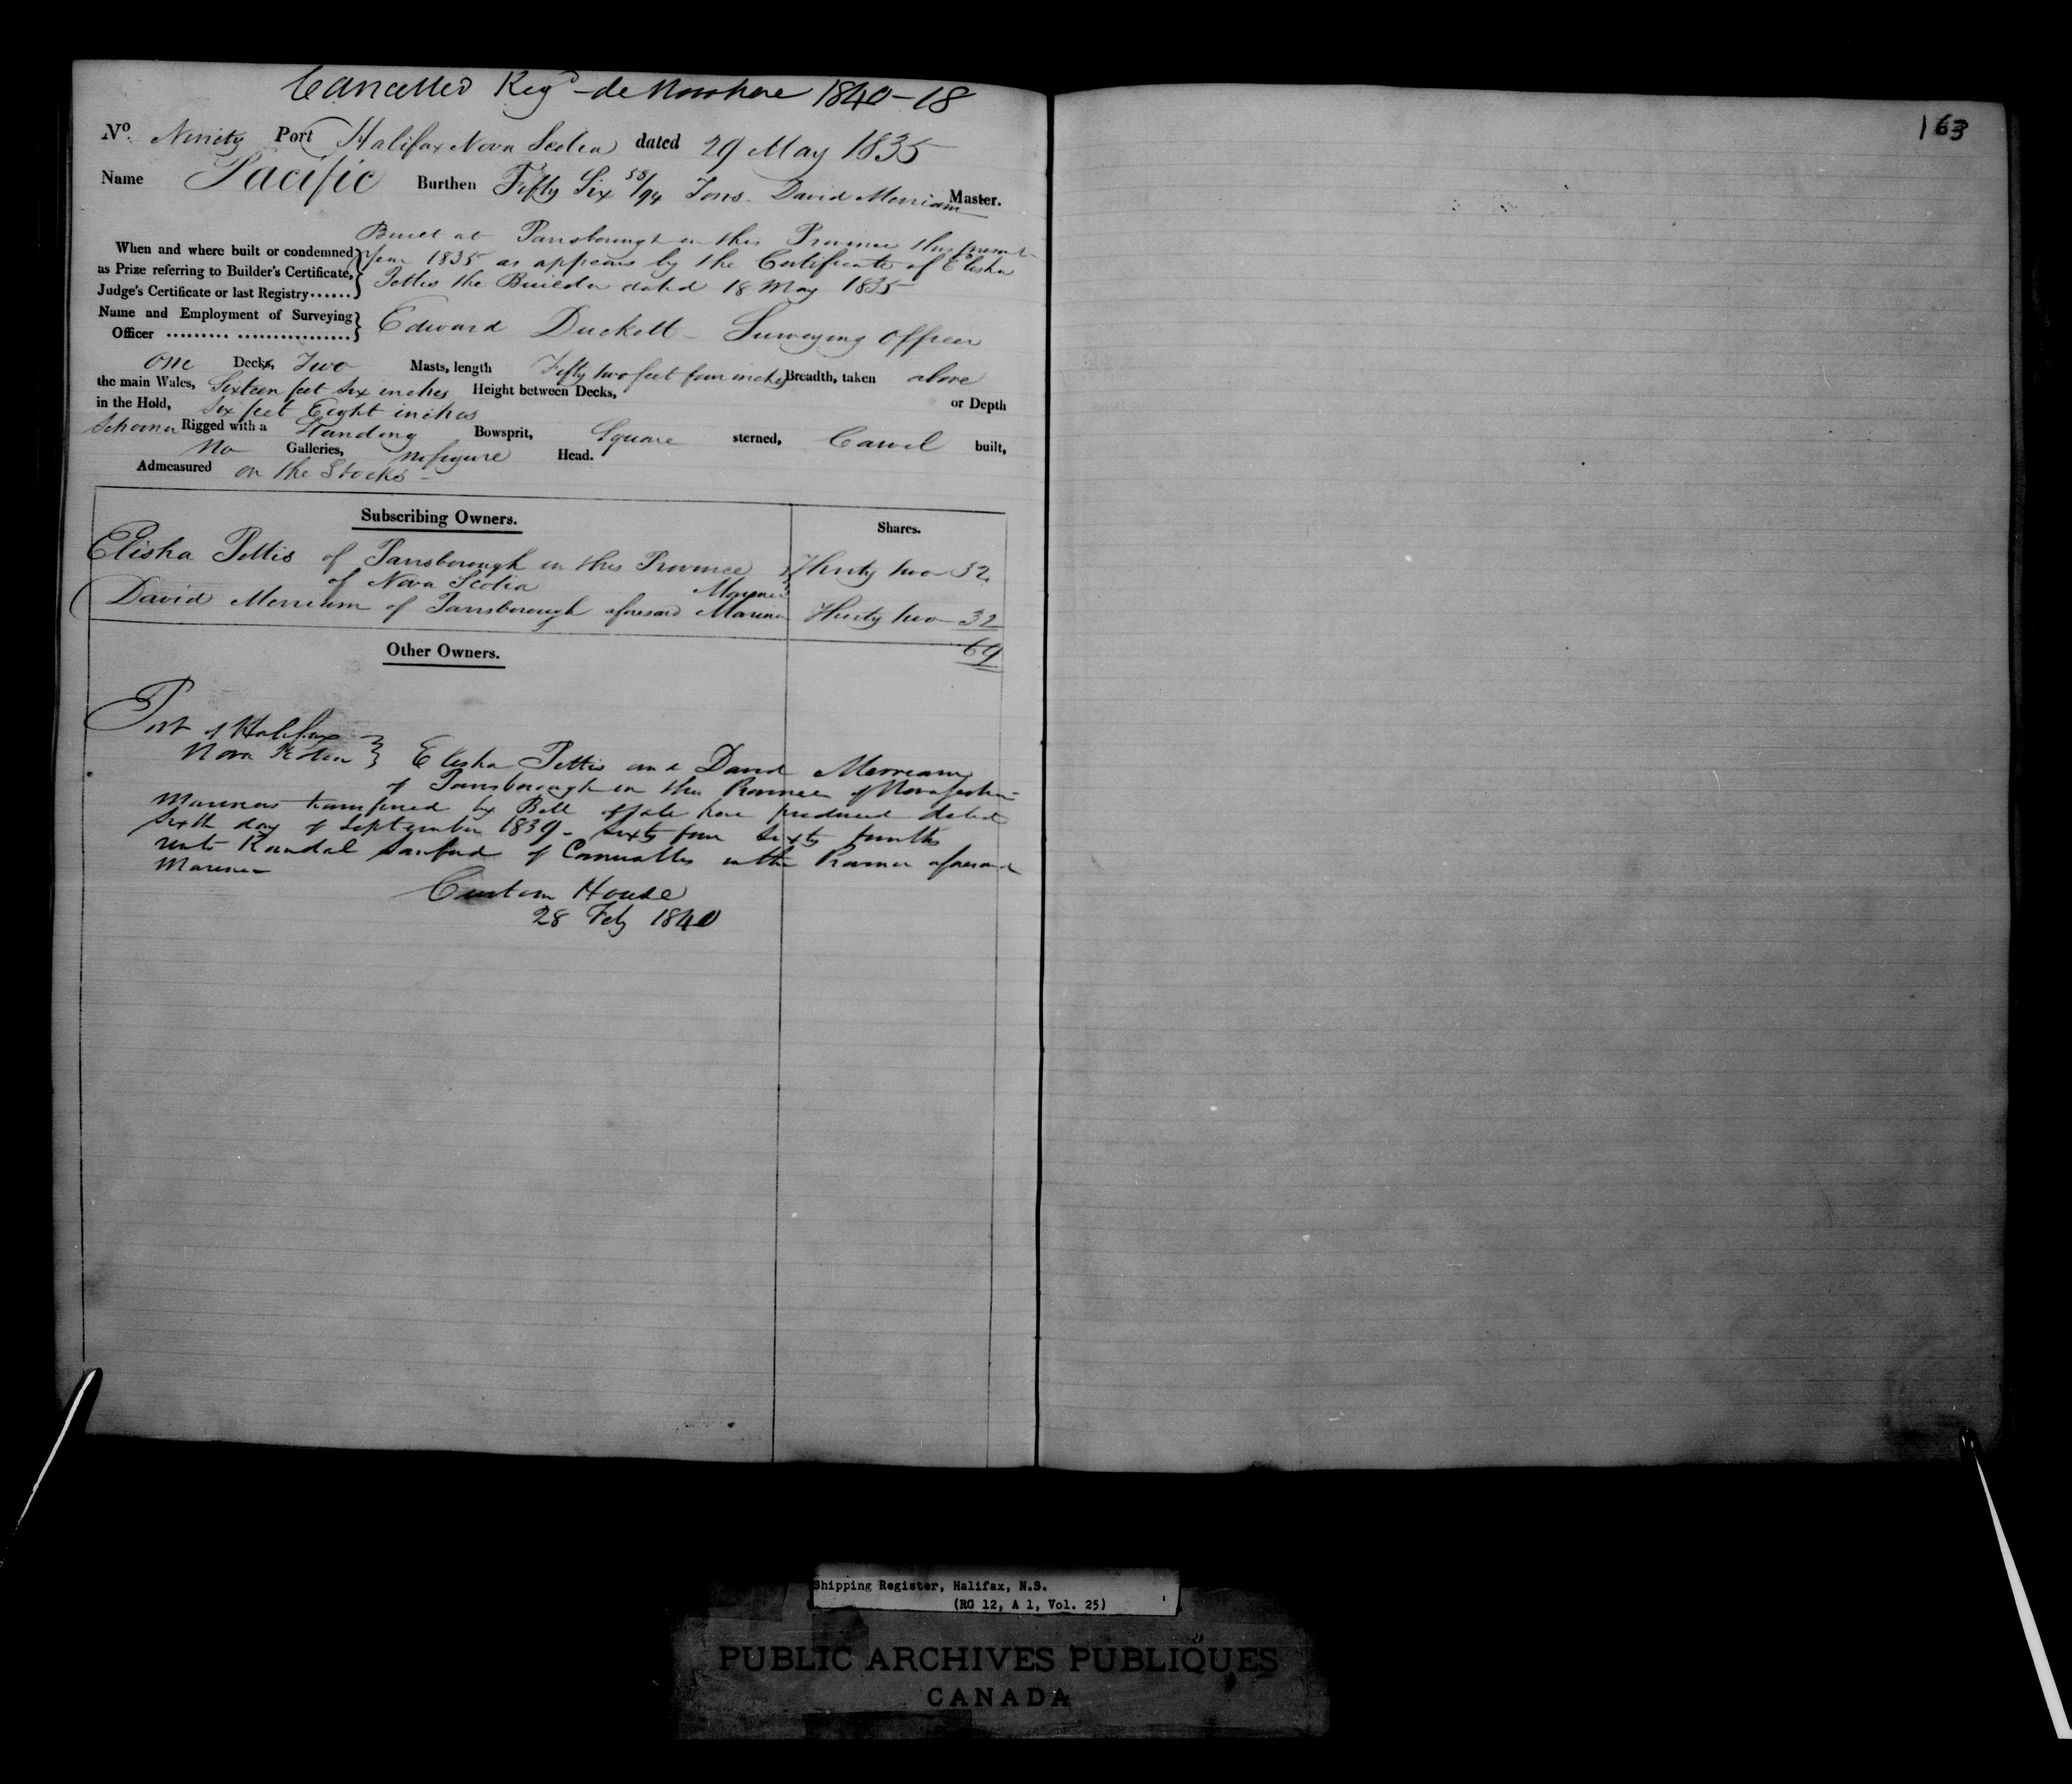 Cancelled Reg^d de Novo here 1840-18
163
No. Ninety Port Halifax Nova Scotia dated 29 May 1835
Name Pacific Burthen Fifty Six 58/94 Tons David Merriam Master.
Built at Parrsborough in this Province this present
When and where built or condemned year 1835 as appears by the Certificate of Elisha
as Prize referring to Builder's Certificate, Pettis the Builder dated 18 May 1835
Judge's Certificate or last Registry......
Name and Employment of Surveying Edward Duckett - Surveying Officer
Officer ......... ................
One Decks, Two Masts, length Fifty two feet four inches Breadth, taken above
the main Wales, Sixteen feet six inches Height between Decks, or Depth
in the Hold, Six feet Eight inches
Schooner Rigged with a Standing Bowsprit, Square sterned, Carvel built,
No Galleries, no figure Head.
Admeasured on the Stocks -
Subscribing Owners. Shares.
Elisha Pettis of Parrsborough in this Province Thirty two 32
of Nova Scotia Mariner
David Merriam of Parrsborough aforesaid Mariner Thirty two 32
64
Other Owners.
Port of Halifax
Nova Scotia } Elisha Pettis and David Merriam
of Parrsborough in the Province of Nova Scotia
Mariners transferred by Bill of Sale here produced dated
Sixth day of September 1839 - Sixty four Sixty fourths
unto Randal Sanford of Cornwallis in the Province aforesaid
Mariner
Custom House
28 Feby 1840
Shipping Register, Halifax, N.S.
(RG 12, A 1, Vol. 25)
PUBLIC ARCHIVES PUBLIQUES
CANADA